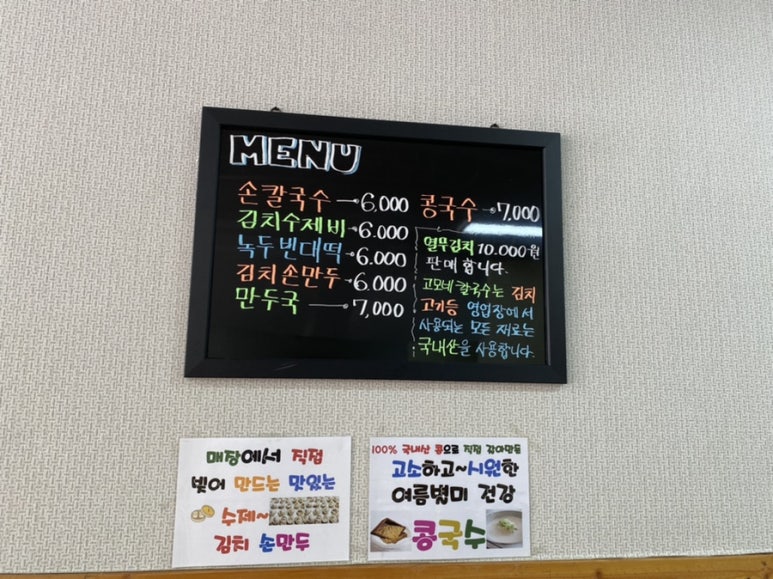 MENU
손칼국수 6,000
김치수제비 6,000
녹두빈대떡 6,000
김치손만두 6,000
만두국 7,000
콩국수 7,000
열무김치 10.000원
판매합니다.
고모네칼국수는 김치
고기등 영업장에서
사용되는 모든 재료는
국내산을 사용합니다.
매장에서 직접
빚어 만드는 맛있는
수제~
김치 손만두
100% 국내산 콩으로 직접 갈아만든
고소하고~시원한
여름별미 건강
콩국수